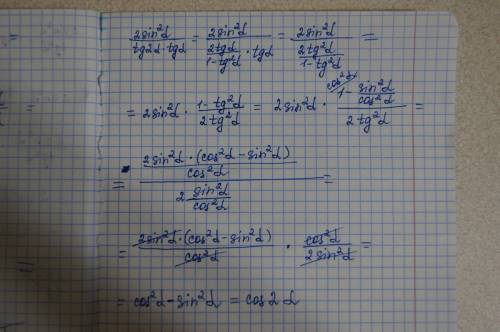 2sin²α / (tg2α · tgα) = 2sin²α / ((2tgα / (1-tg²α)) · tgα) = 2sin²α / (2tg²α / (1-tg²α)) =
= 2sin²α · (1-tg²α) / (2tg²α) = 2sin²α · (cos²α/ 1 - sin²α / cos²α) / (2tg²α) =
= (2sin²α · (cos²α - sin²α) / cos²α) / (2 sin²α / cos²α) =
= 2sin²α · (cos²α - sin²α) / cos²α · cos²α / 2sin²α =
= cos²α - sin²α = cos2α